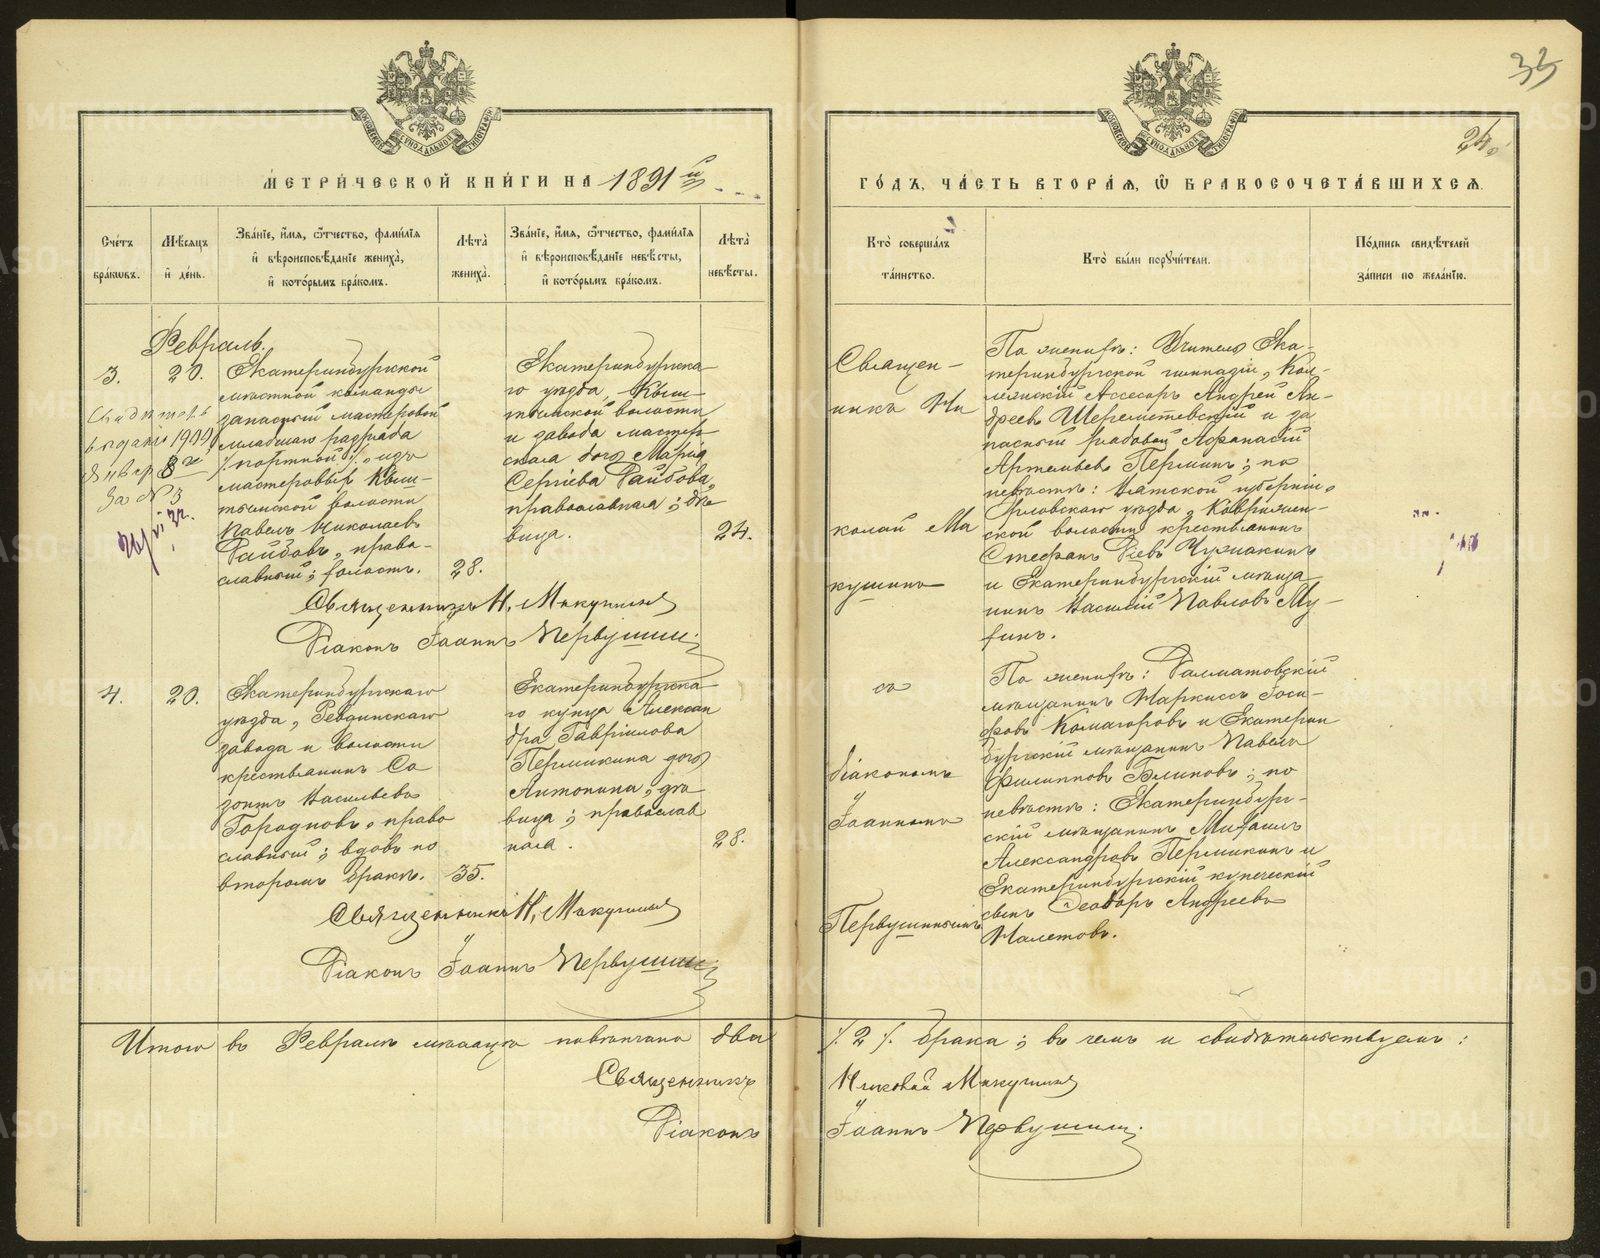 33
24.
МЕТРИЧЕСКОЙ КНИГИ НА 1891й
ГОДЪ, ЧАСТЬ ВТОРАЯ, Ѡ БРАКОСОЧЕТАВШИХСЯ.
Счетъ браковъ.
Мѣсяцъ и день.
Званіе, имя, ѿчество, фамилія
и вѣроисповѣданіе жениха,
и которымъ бракомъ.
Лѣта
жениха.
Званіе, имя, ѿчество, фамилія
и вѣроисповѣданіе невѣсты,
и которымъ бракомъ.
Лѣта
невѣсты.
Кто совершалъ
таинство.
Кто были поручители.
Подпись свидѣтелей
записи по желанію.
Февраль.
3.
20.
Екатеринбургской
мѣстной команды
запасный мастеровой
младшаго разряда
/портной/, изъ
мастеровыхъ Кыш-
тымской волости
Павелъ Николаевъ
Гайбовъ, право-
славный; холостъ.
28.
выданъ 1909
Января 8го
За № 3
Екатеринбургска-
го уѣзда Кыш-
тымской волости
и завода мастер-
скаго дочь Марія
Сергіева Гайбова,
православная; дѣ-
вица.
24.
Священ-
никъ Ни
колай Ма
кушинъ
По женихѣ: Учитель Ека-
теринбургской гимназіи, Кол-
лежскій Ассесоръ Андрей Ан-
дреевъ Шереметевскій и за
пасный рядовой Афанасій
Артемьевъ Перминъ; по
невѣстѣ: Вятской губерніи,
Орловскаго уѣзда,
ской волости крестьянинъ
Стефанъ
и Екатеринбургскій мѣща
нинъ Василій Павловъ Му-
хинъ.
Священникъ Н. Макушинъ
Діаконъ Іоаннъ Первушинъ
4.
20.
Екатеринбургскаго
уѣзда, Ревдинскаго
завода и волости
крестьянинъ Со
зонтъ Васильевъ
Городновъ, право
славный; вдовъ по
второмъ бракѣ.
35.
Екатеринбургска-
го купца Алексан
дра Гавріилова
Пермикина дочь
Антонина, дѣ-
вица; православ
ная.
28.
съ
діакономъ
Іоанномъ
Первушинымъ
По женихѣ: Далматовскій
мѣщанинъ Маркиссъ Іоси-
фовъ Комаровъ и Екатерин
бургскій мѣщанинъ Павелъ
Филипповъ Блиновъ; по
невѣстѣ: Екатеринбург-
скій мѣщанинъ Михаилъ
Александровъ Пермикинъ и
Екатеринбургскій купеческій
сынъ Ѳеодоръ Андреевъ
Налетовъ.
Священникъ Н. Макушинъ
Діаконъ Іоаннъ Первушинъ
Итого въ Февралѣ мѣсяцѣ повѣнчано два
/2/. брака; въ чемъ и свидѣтельствуемъ:
Священникъ Николай Макушинъ
Діаконъ Іоаннъ Первушинъ
METRIKI.GASO-URAL.RU